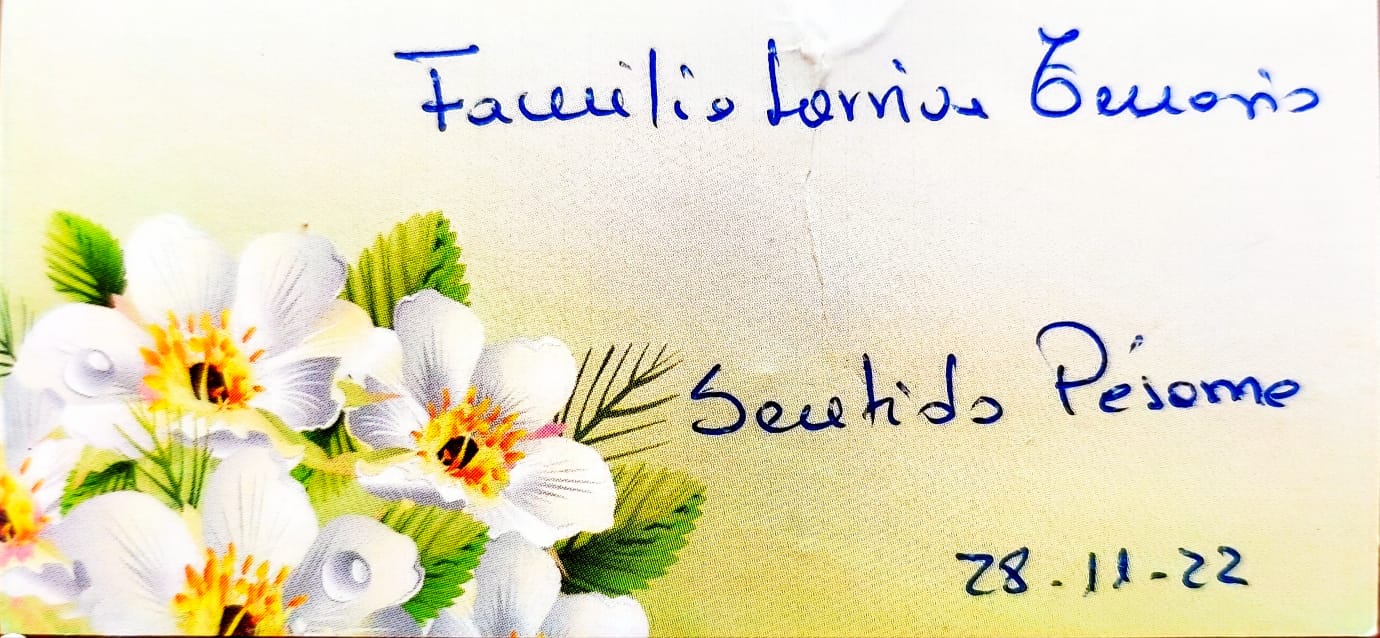 Familia Larriva Tenorio
Sentido Pésame
28-11-22